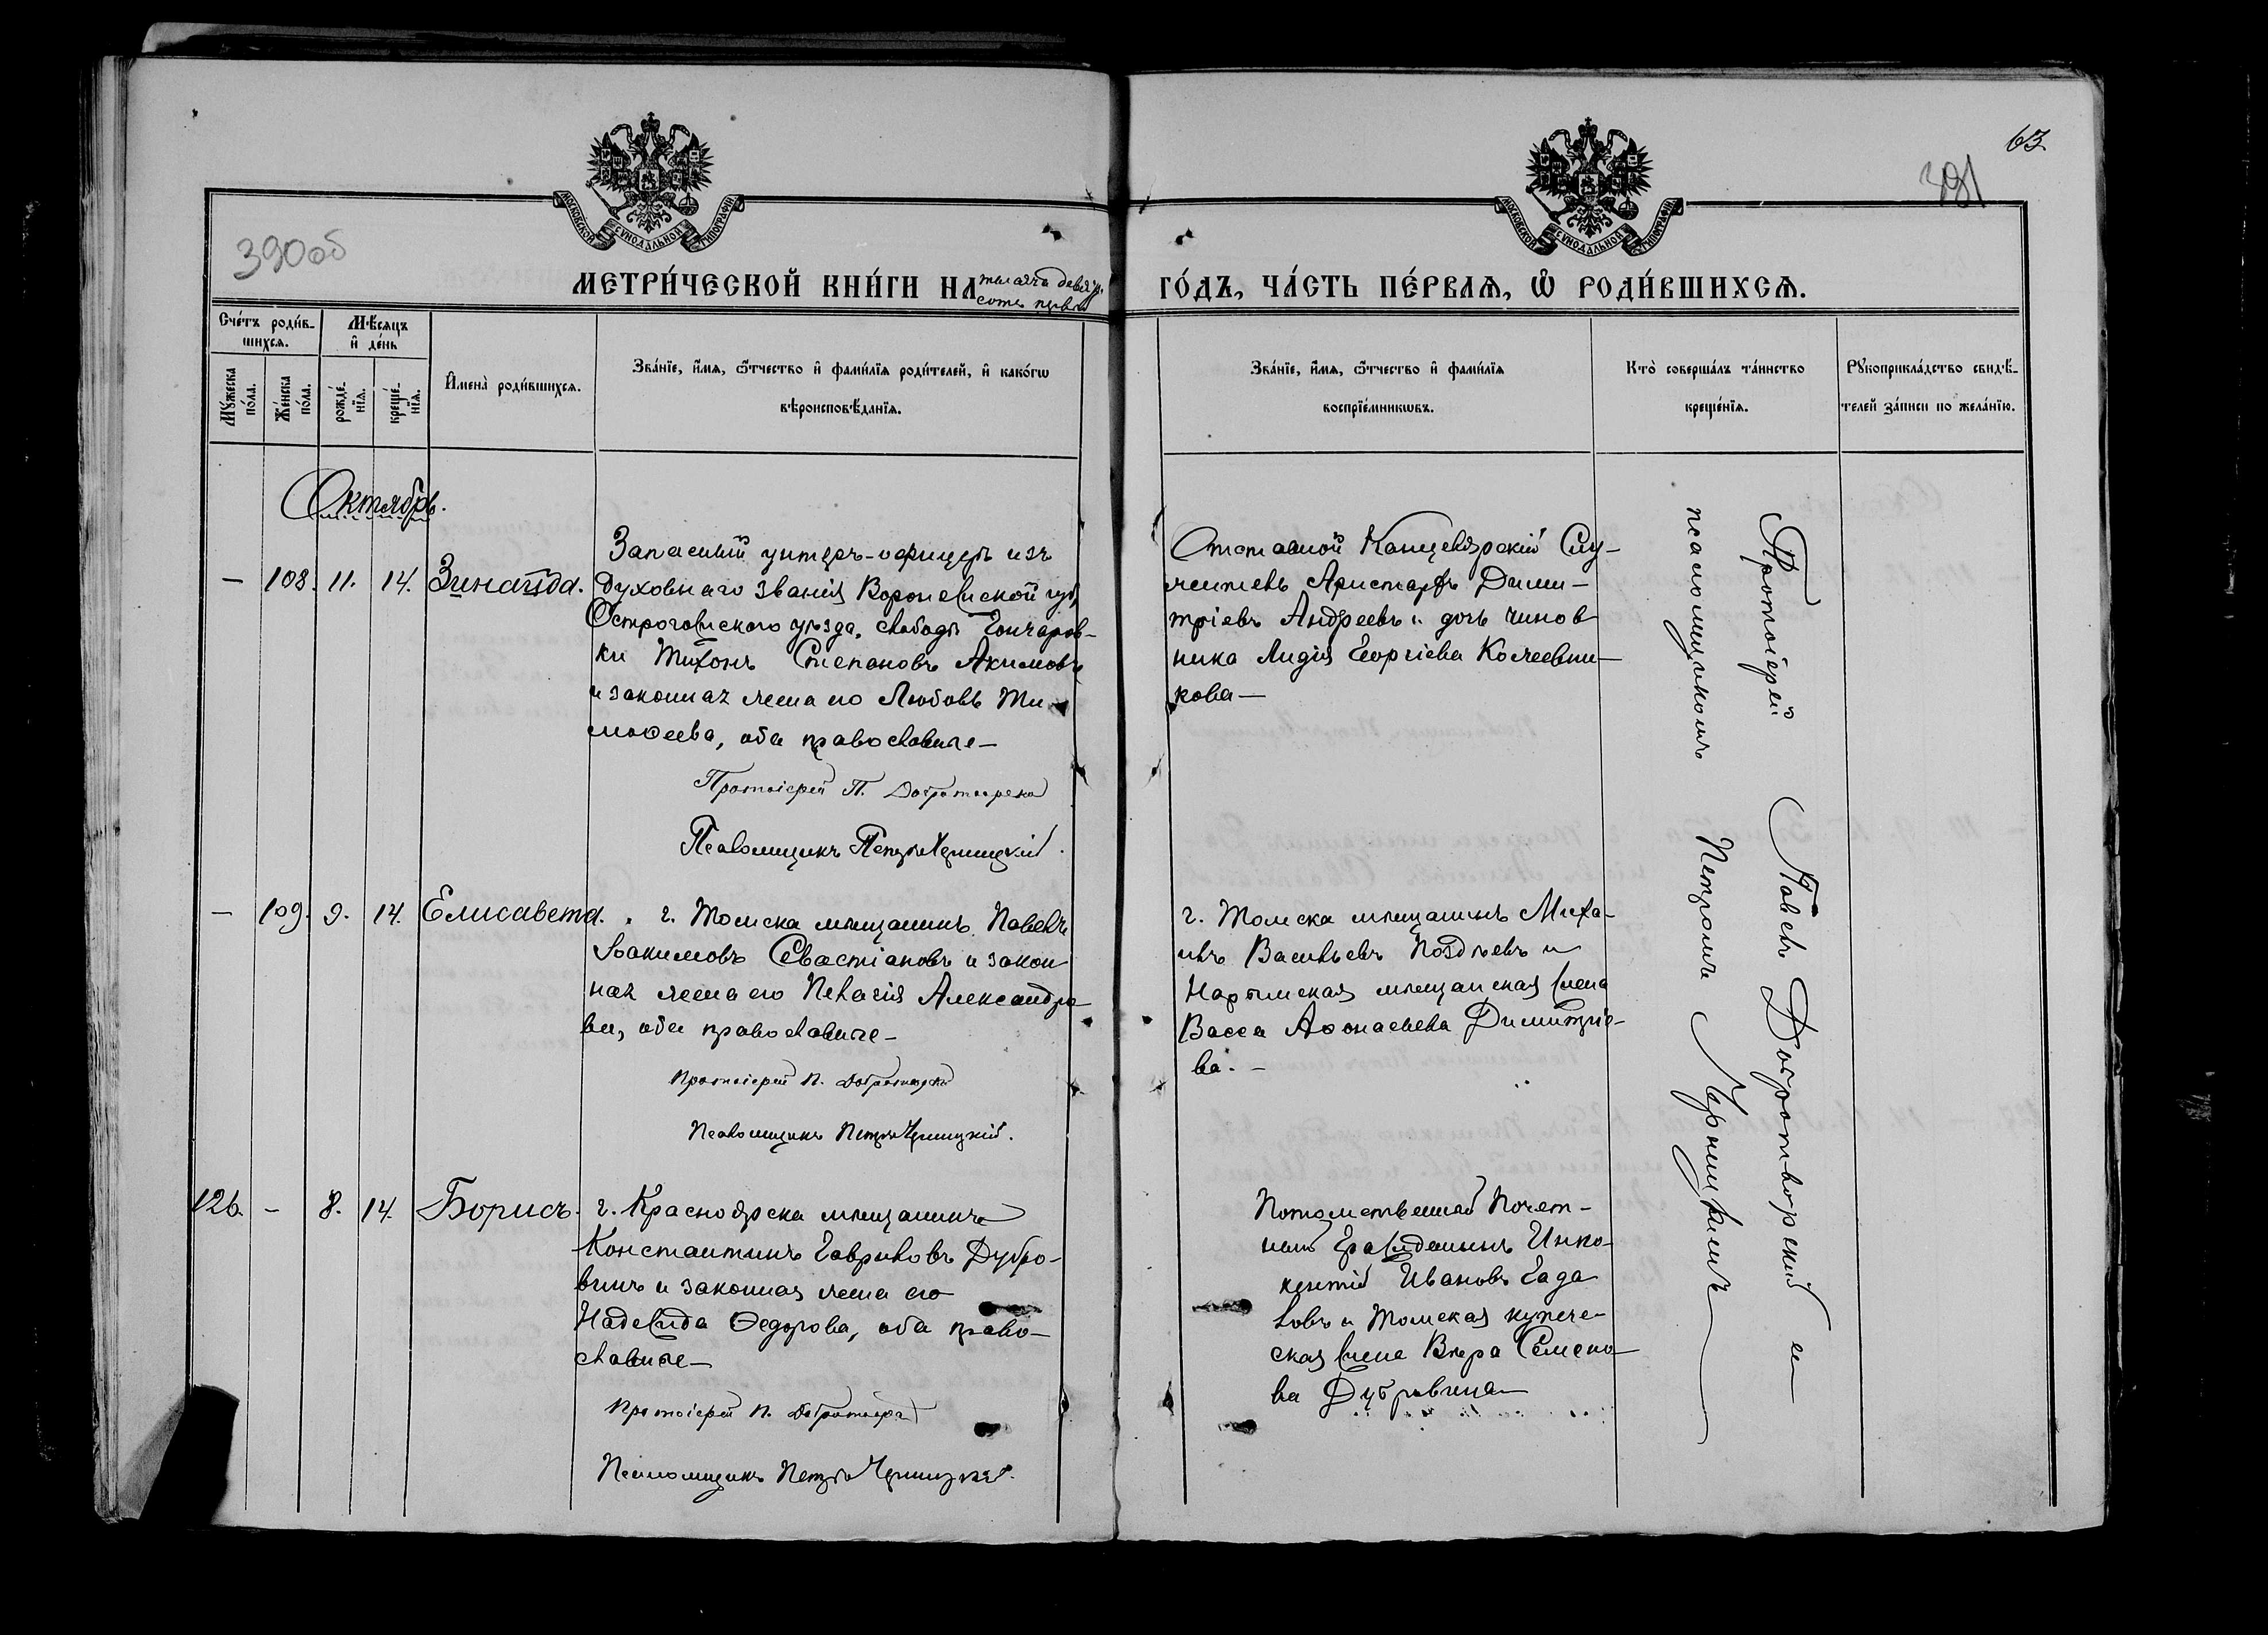 63
391
390об
МОСКОВСКОЙ СѴНОДАЛЬНОЙ ТИПОГРАФІИ
МОСКОВСКОЙ СѴНОДАЛЬНОЙ ТИПОГРАФІИ
МЕТРИ́ЧЕСКОЙ КНИ́ГИ НА тысяча девять-
сотъ первый
ГО́ДЪ, ЧА́СТЬ ПЕ́РВАѦ, Ѽ РОДИ́ВШИХСѦ.
Сче́тъ роди́в-
шихсѧ.
Мꙋ́жеска по́ла.
Же́нска по́ла.
Мѣ́сѧцъ
и҆ де́нь
рожде́-
нїѧ.
креще́-
нїѧ.
И҆мена̀ роди́вшихсѧ.
Зва́нїе, и҆́мѧ, ѻ҆́тчество и҆ фами́лїѧ роди́телей, и҆ како́гѡ
вѣроисповѣ́данїѧ.
Зва́нїе, и҆́мѧ, ѻ҆́тчество и҆ фами́лїѧ
воспрїе́мникѡвъ.
Кто̀ соверша́лъ та́инство
креще́нїѧ.
Рꙋкоприкла́дство свидѣ́-
телей за́писи по жела́нїю.
Октябрь.
— 108. 11. 14. Зинаида.
Запасный унтеръ-офицеръ изъ
духовнаго званія Воронежской губ,
Острогожскаго уѣзда, слободы Гончаров-
ки Тихонъ Степановъ Акимовъ
и законная жена его Любовь Ти-
моѳеева, оба православные—
Протоіерей П. Добротворскій
Псаломщикъ Петръ Черницкій.
Отставной Канцелярскій Слу-
житель Аристархъ Дими-
тріевъ Андреевъ и дочь чинов
ника Лидія Георгіева Кожевни-
кова—
— 109. 9. 14. Елисавета.
г. Томска мѣщанинъ Павелъ
Іоакимовъ Севастіановъ и закон
ная жена его Пелагія Александро
ва, оба православные—
Протоіерей П. Добротворскій
Псаломщикъ Петръ Черницкій.
г. Томска мѣщанинъ Миха-
илъ Васильевъ Поздѣевъ и
Нарымская мѣщанская жена
Васса Аѳонасьева Димитріе-
ва. —
126. — 8. 14. Борисъ.
г. Красноярска мѣщанинъ
Константинъ Гавриловъ Дубро-
винъ и законная жена его
Надежда Ѳедорова, оба право-
славные—
Протоіерей П. Добротворскій
Псаломщикъ Петръ Черницкій.
Потомственный Почет-
ный Гражданинъ Инно-
кентій Ивановъ Гада
ловъ и Томская купече-
ская жена Вѣра Семено-
ва Дубровина—
Протоіерей Павелъ Добротворскій и
псаломщикомъ Петромъ Черницкимъ